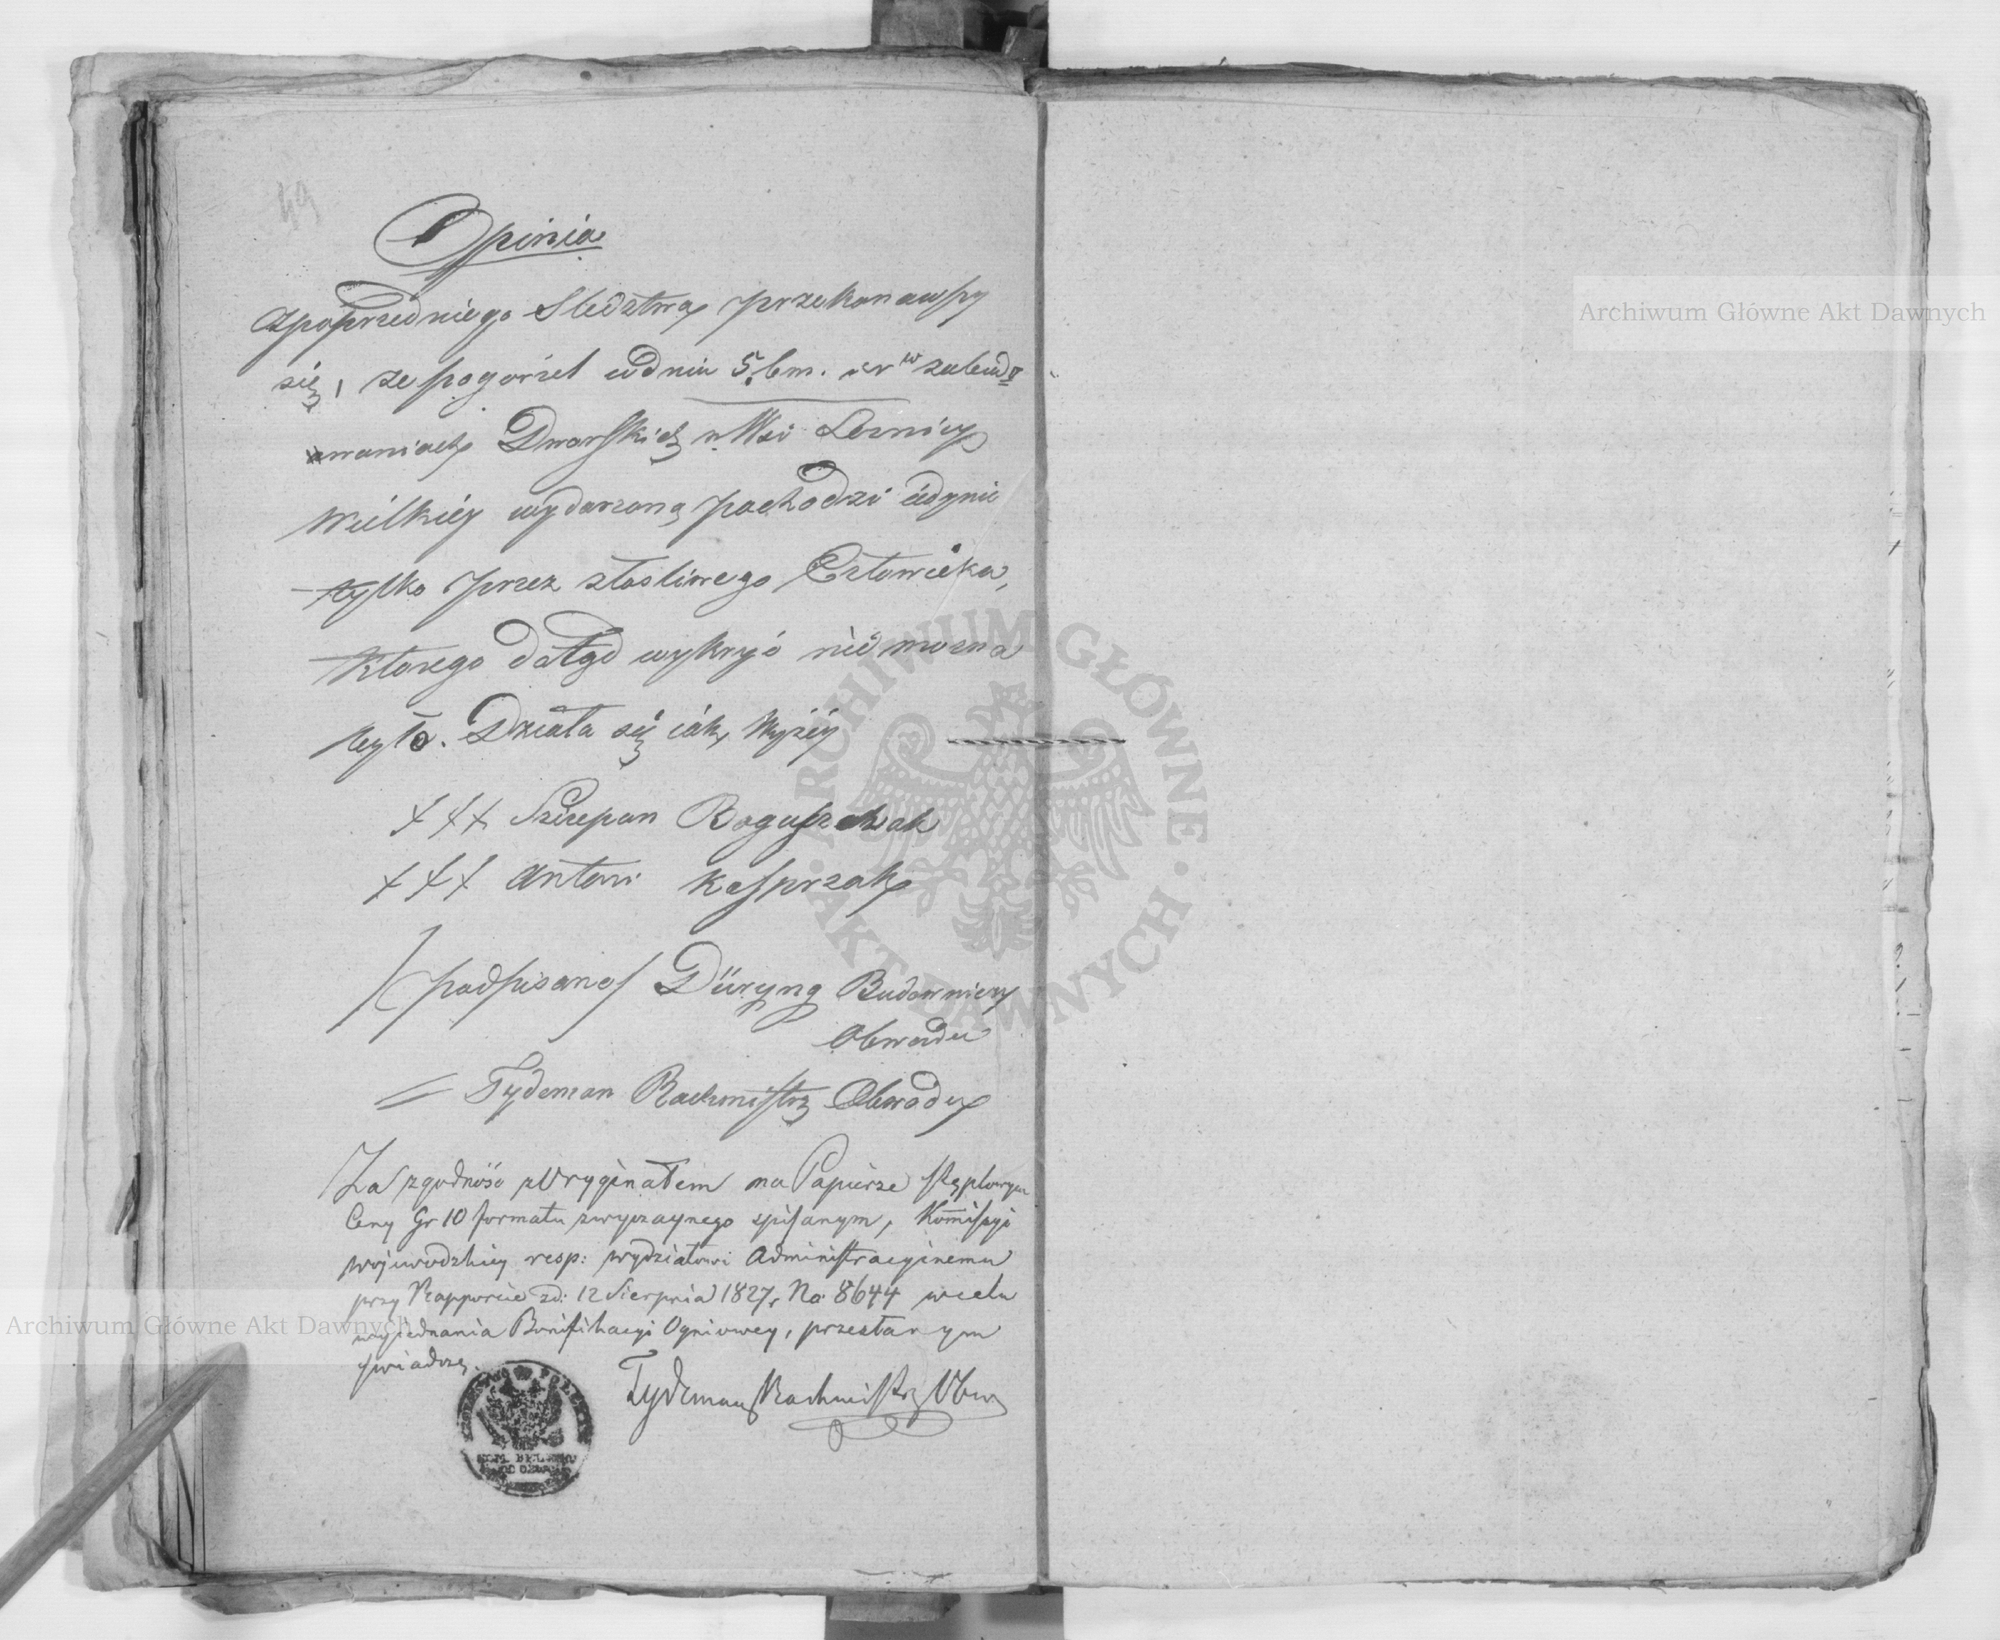 49
Opinia
Zpoprzedniego Sledztwa przekonawszy
się, że pogorzel wdniu 5. bm. w zabudo
waniach Dworskich w Wsi
Wielkiéy wydarzona pochodzi iédynie
tylko przez złosliwego Człowieka,
ktorego dotąd wykryć nié mozna
było. Działa się iák wyżéy
+++ Szczepan Boguszczak
+++ Antoni Kasprzak
/podpisano/ Düryng Budowniczy
Obwodu
= Tydeman Rachmistrz Obwodu
Za zgodność z Oryginałem na Papierze stęplowym
Ceny Gr 10 formatu zwyczaynego spisanym, Kommissyi
Wojewodzkiey resp: Wydziałowi Administracyinemu
przy Rapporcie zd: 12 Sierpnia 1827 r No 8644 w celu
wyjednania Bonifikacyi Ogniowey, przesłanym
swiadczę.
Tydeman Rachmistrz Obw
Archiwum Główne Akt Dawnych
Archiwum Główne Akt Dawnych
ARCHIWUM GŁÓWNE · AKT DAWNYCH ·